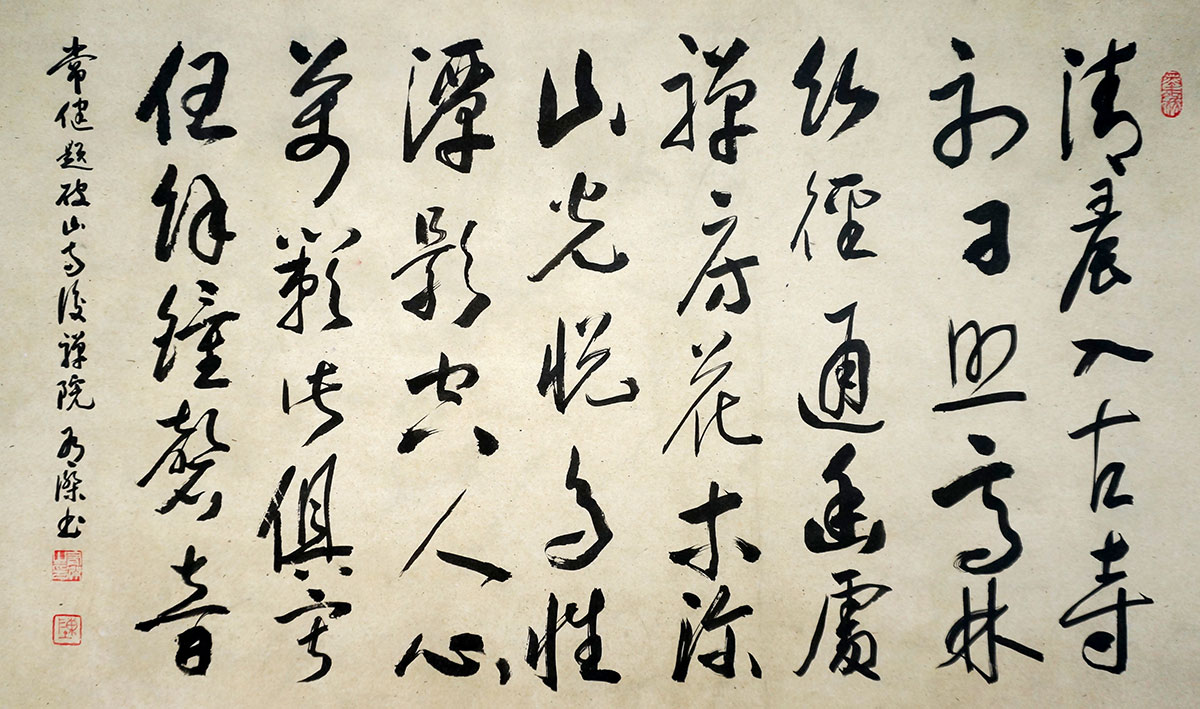 清晨入古寺
初日照高林
竹徑通幽處
禪房花木深
山光悅鳥性
潭影空人心
萬籟此俱寂
但餘鐘磬音
常健題破山寺後禪院 書